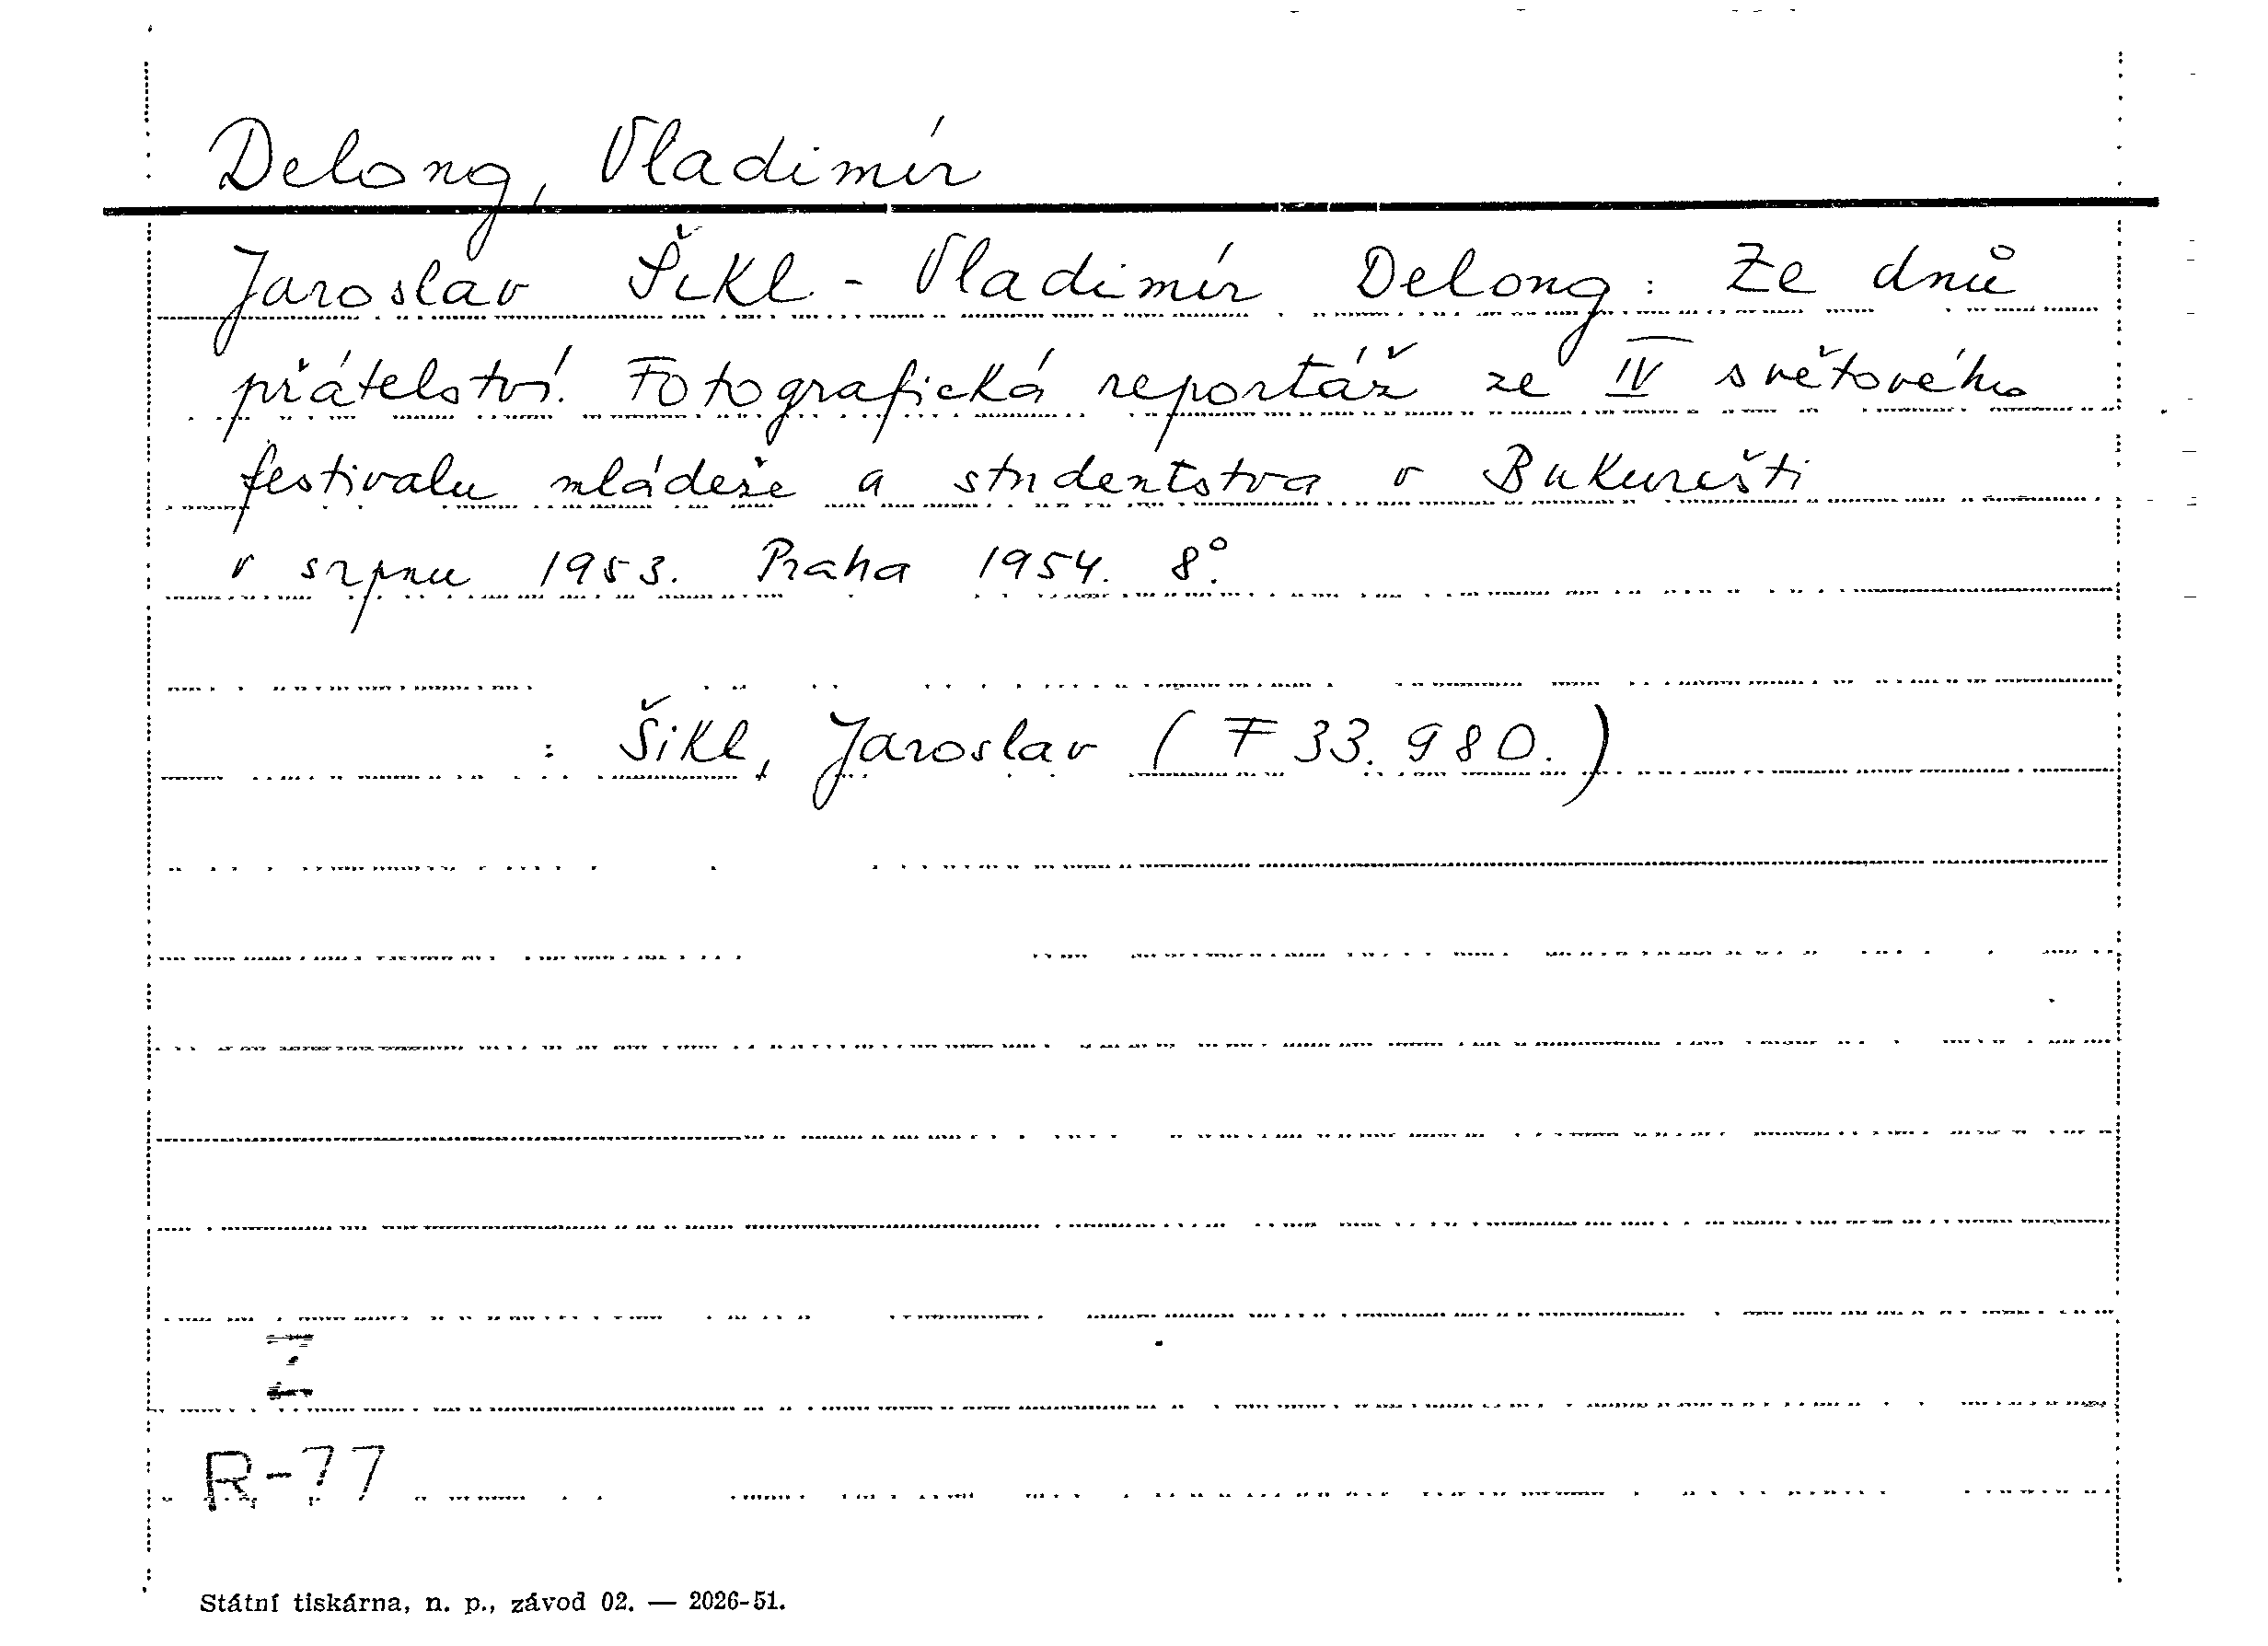 Delong, Vladimír
Jaroslav Šikl - Vladimír Delong: Ze dnů
přátelství. Fotografická reportáž ze IV světového
festivalu mládeže a studentstva v Bukurešti
v srpnu 1953. Praha 1954. 8°.
: Šikl, Jaroslav (F 33.980.)
R-77
Státní tiskárna, n. p., závod 02. — 2026-51.